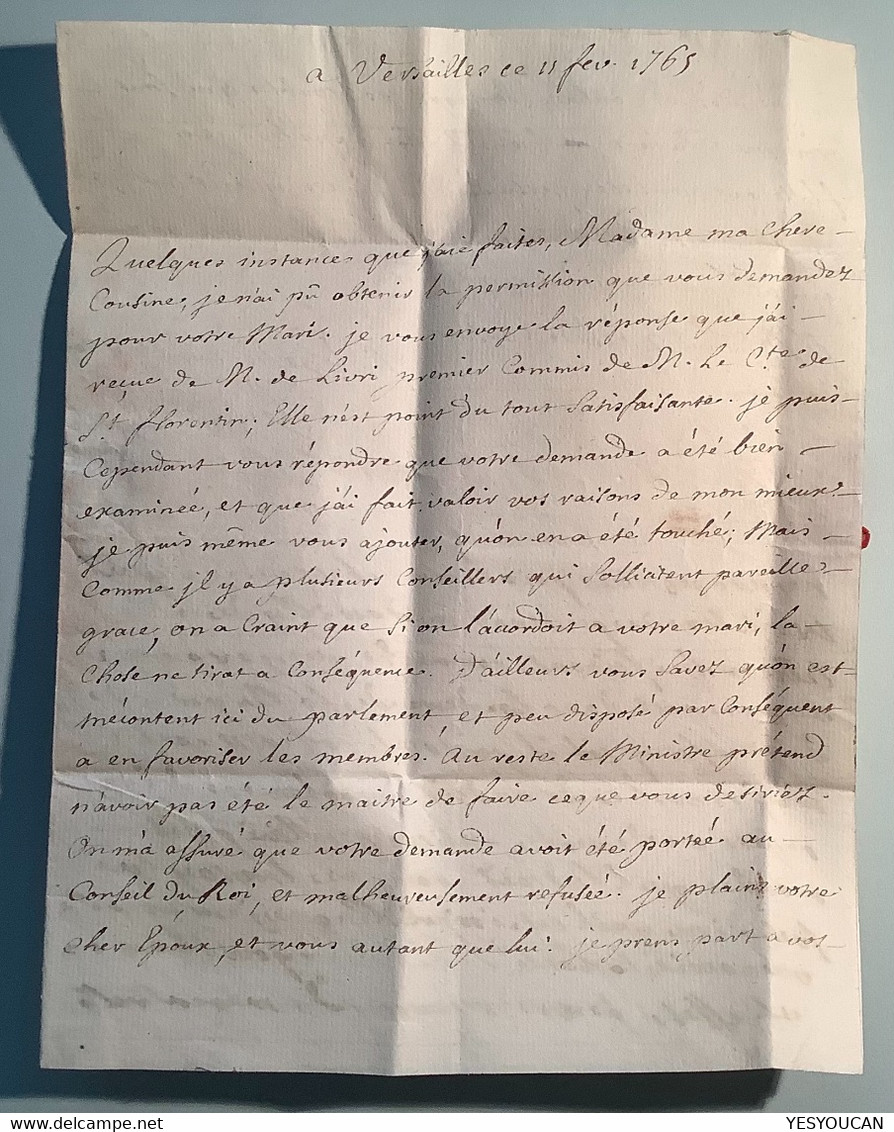 a Versailles ce 11 fev. 1765
Quelques instances que j'aie faites, Madame ma chere
Cousine, je n'ai pû obtenir la permission que vous demandez
pour votre Mari. je vous envoye la réponse que j'ai
reçue de M. de Livri premier Commis de M. Le Cte. de
St. florentin; Elle n'est point du tout Satisfaisante. je puis
Cependant vous répondre que votre demande a été bien
examinée, et que j'ai fait valoir vos raisons de mon mieux.
je puis même vous ajouter, qu'on en a été touché; Mais
Comme jl y a plusieurs Conseillers qui Sollicitent pareille
grace, on a Craint que Si on l'acordoit a votre mari, la
Chose ne tirat a Conséquence. D'ailleurs vous Savez qu'on est
mécontent ici du parlement, et peu disposé par Conséquent
a en favoriser les membres. Au reste le Ministre prétend
n'avoir pas été le maitre de faire ce que vous desiriez.
On m'a assuré que votre demande avoit été portée au
Conseil du Roi, et malheureusement refusée. je plains votre
cher Epoux, et vous autant que lui. je prens part a vos
YESYOUCAN